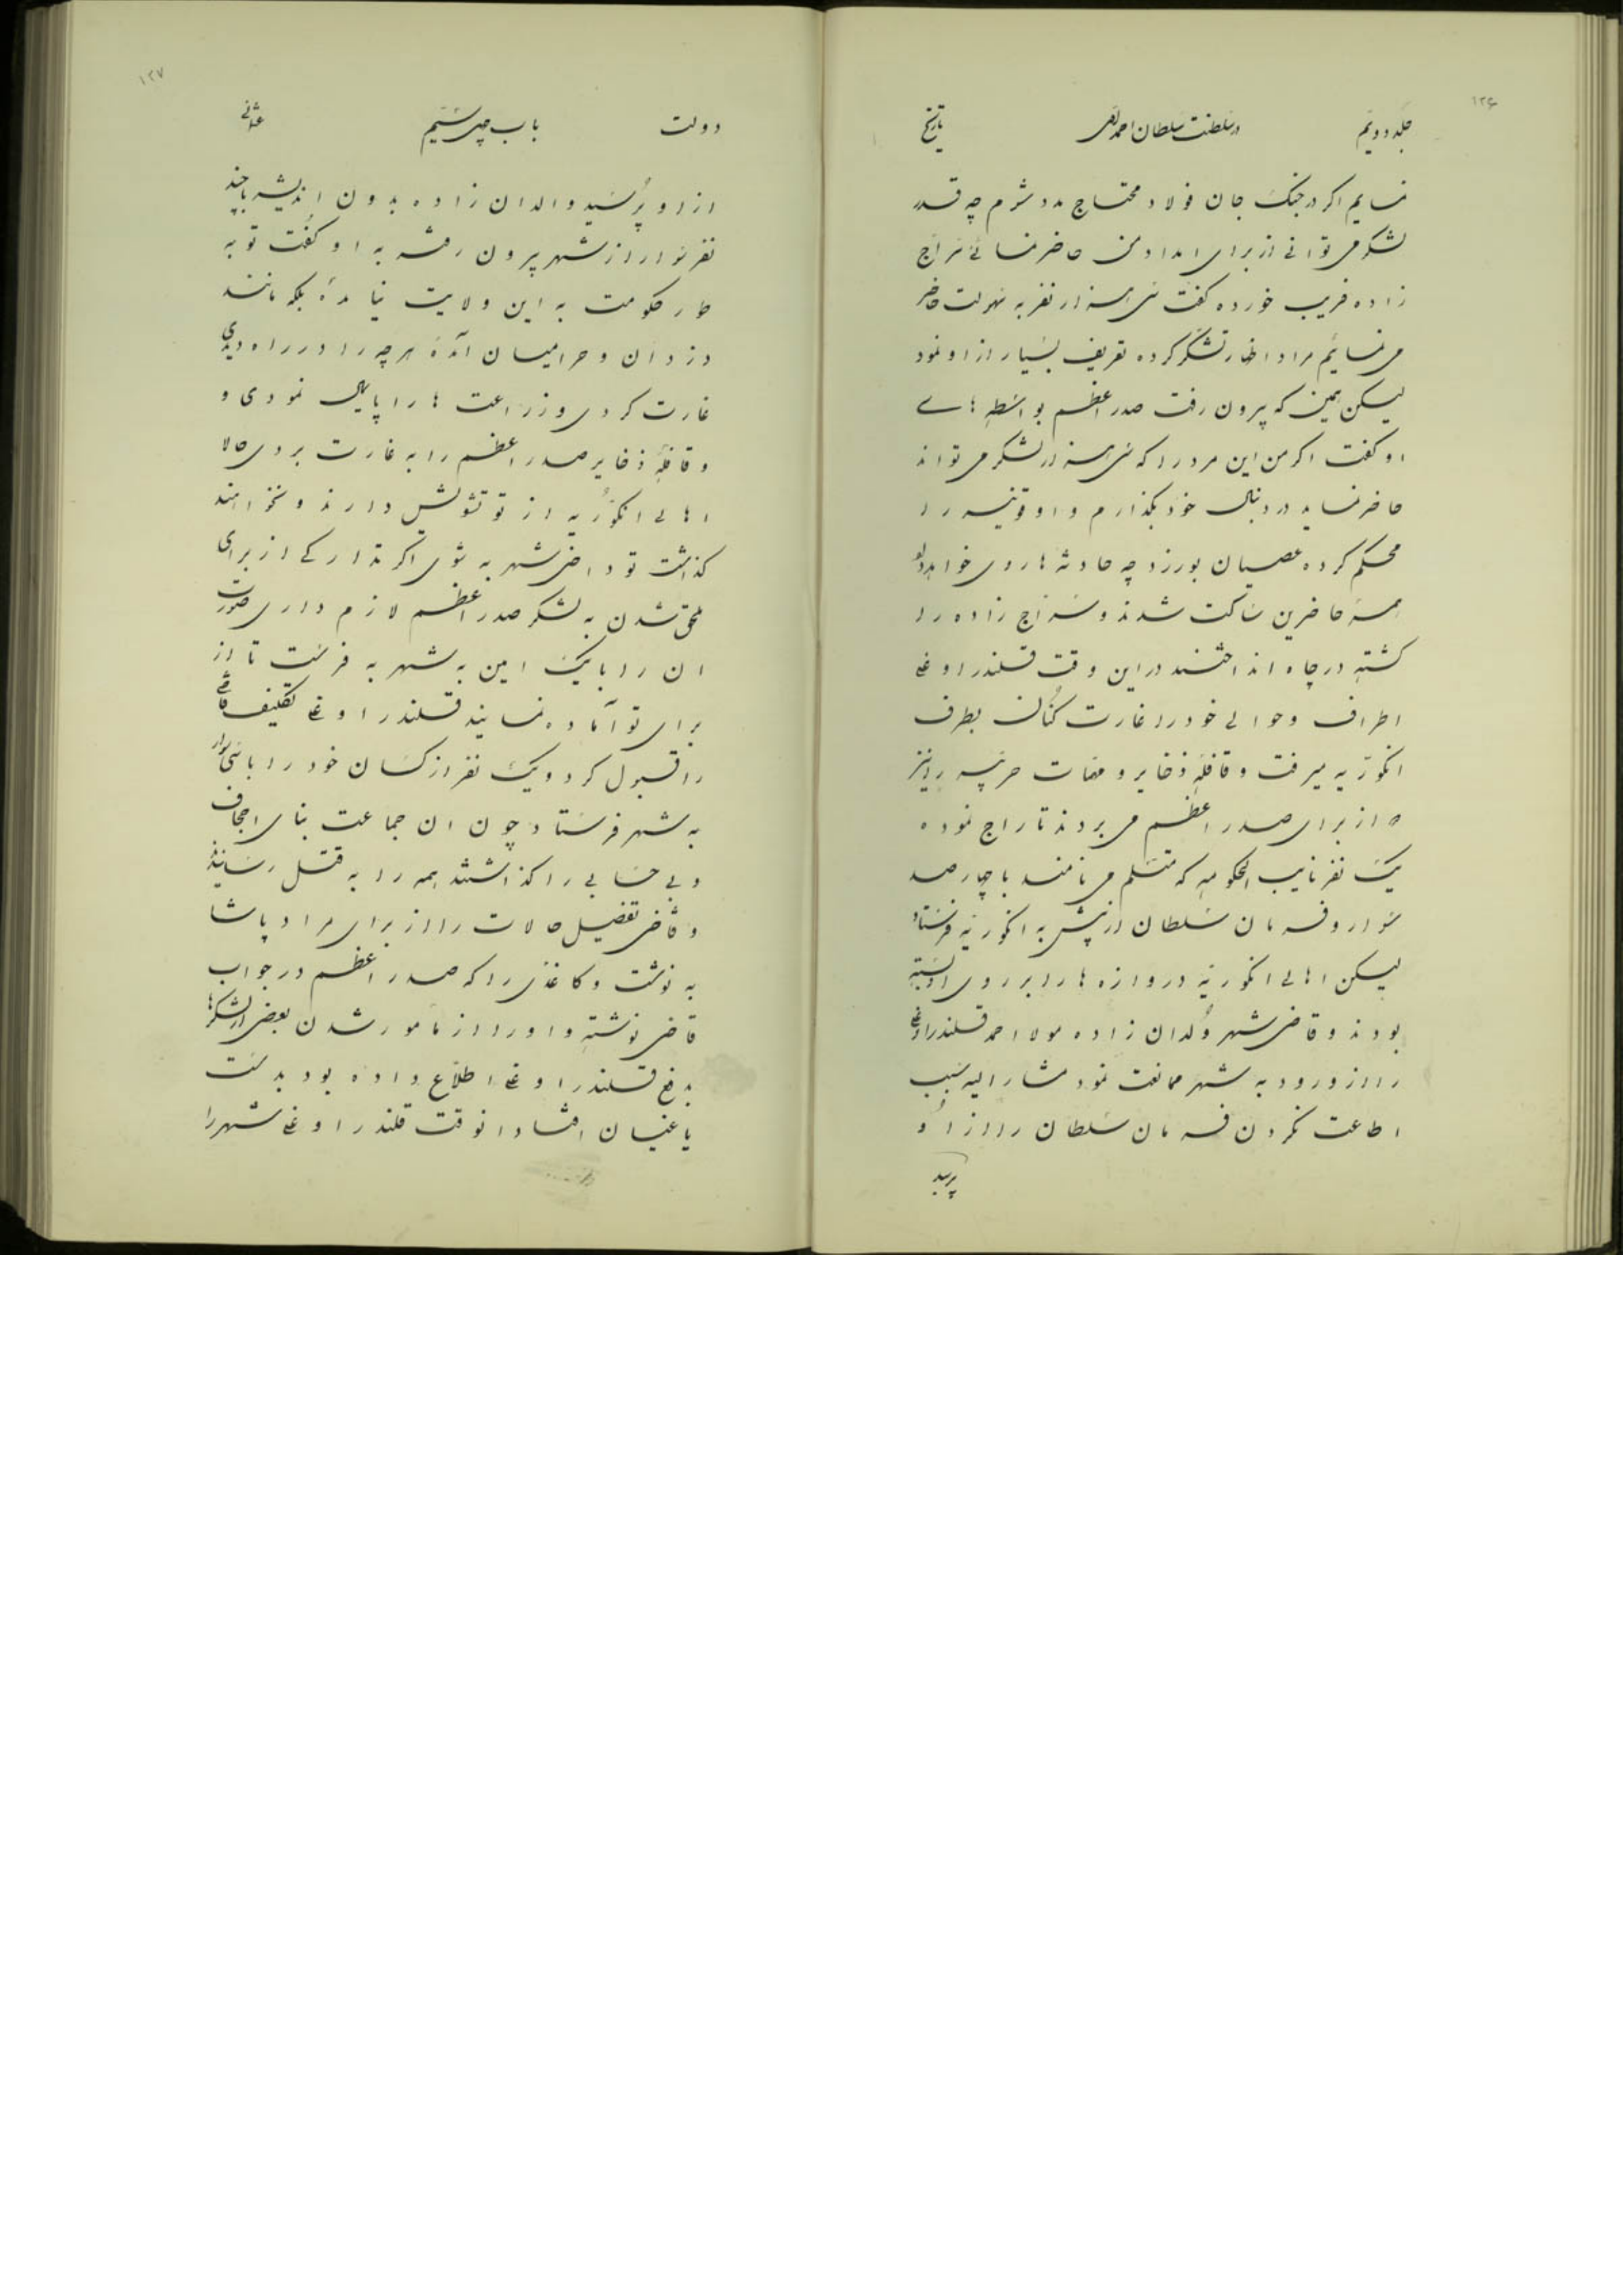 ۱۲۶
جلد دویم
در سلطنت سلطان احمد
تاریخ
نمایم اکر در جنک جان فولاد محتاج مدد شوم چه قدر
لشکر می توانی از برای امداد من حاضر نمائی سراج
زاده فریب خورده کفت سی هزار نفر به سهولت حاضر
می نمایم مراد اظهار تشکر کرده تعریف بسیار از او نمود
لیکن همین که بیرون رفت صدر اعظم بواسطه های
او کفت اکر من این مرد را که سی هزار لشکر می تواند
حاضر نماید در دنبال خود بکذارم و او قونیه را
محکم کرده عصیان بورزد چه حادثه ها روی خواهد داد
همه حاضرین ساکت شدند و سراج زاده را
کشته در چاه انداختند در این وقت قلندر اوغلی
اطراف و حوالی خود را غارت کنان بطرف
انکوریه میرفت و قافله ذخایر و مهمات حربیه را نیز
که از برای صدر اعظم می بردند تاراج نموده
یک نفر نایب الحکومه که متسلم می نامند با چهار صد
سوار و فرمان سلطان از پیش به انکوریه فرستاد
لیکن اهالی انکوریه دروازه ها را بر روی او بسته
بودند و قاضی شهر ولدان زاده مولا احمد قلندر اوغلی
را از ورود به شهر ممانعت نمود مشارالیه سبب
اطاعت نکردن فرمان سلطان را از او
پرسید
۱۲۷
دولت
باب چهل ششم
عثمانی
از او پرسید والدان زاده بدون اندیشه با چند
نفر سوار از شهر بیرون رفته به او کفت تو به
طور حکومت به این ولایت نیامدهٔ بلکه مانند
دزدان و حرامیان آمدهٔ هر چه را در راه دیدی
غارت کردی و زراعت ها را پایمال نمودی و
و قافلهٔ ذخایر صدر اعظم را به غارت بردی حالا
اهالی انکوریه از تو تشویش دارند و نخواهند
کذاشت تو داخل شهر به شوی اکر تدارکی از برای
ملحق شدن به لشکر صدر اعظم لازم داری صورت
ان را با یک امین به شهر به فرست تا از
برای تو آماده نمایند قلندر اوغلی تکلیف قاضی
را قبول کرد و یک نفر از کسان خود را با سی سوار
به شهر فرستاد چون ان جماعت بنای اجحاف
و بی حسابی را کذاشتند همه را به قتل رسانیدند
و قاضی تفصیل حالات را از برای مراد پاشا
به نوشت و کاغذی را که صدر اعظم در جواب
قاضی نوشته و او را از مامور شدن بعضی از لشکرها
بدفع قلندر اوغلی اطلاع داده بود بدست
یاغیان افتاد انوقت قلندر اوغلی شهر را